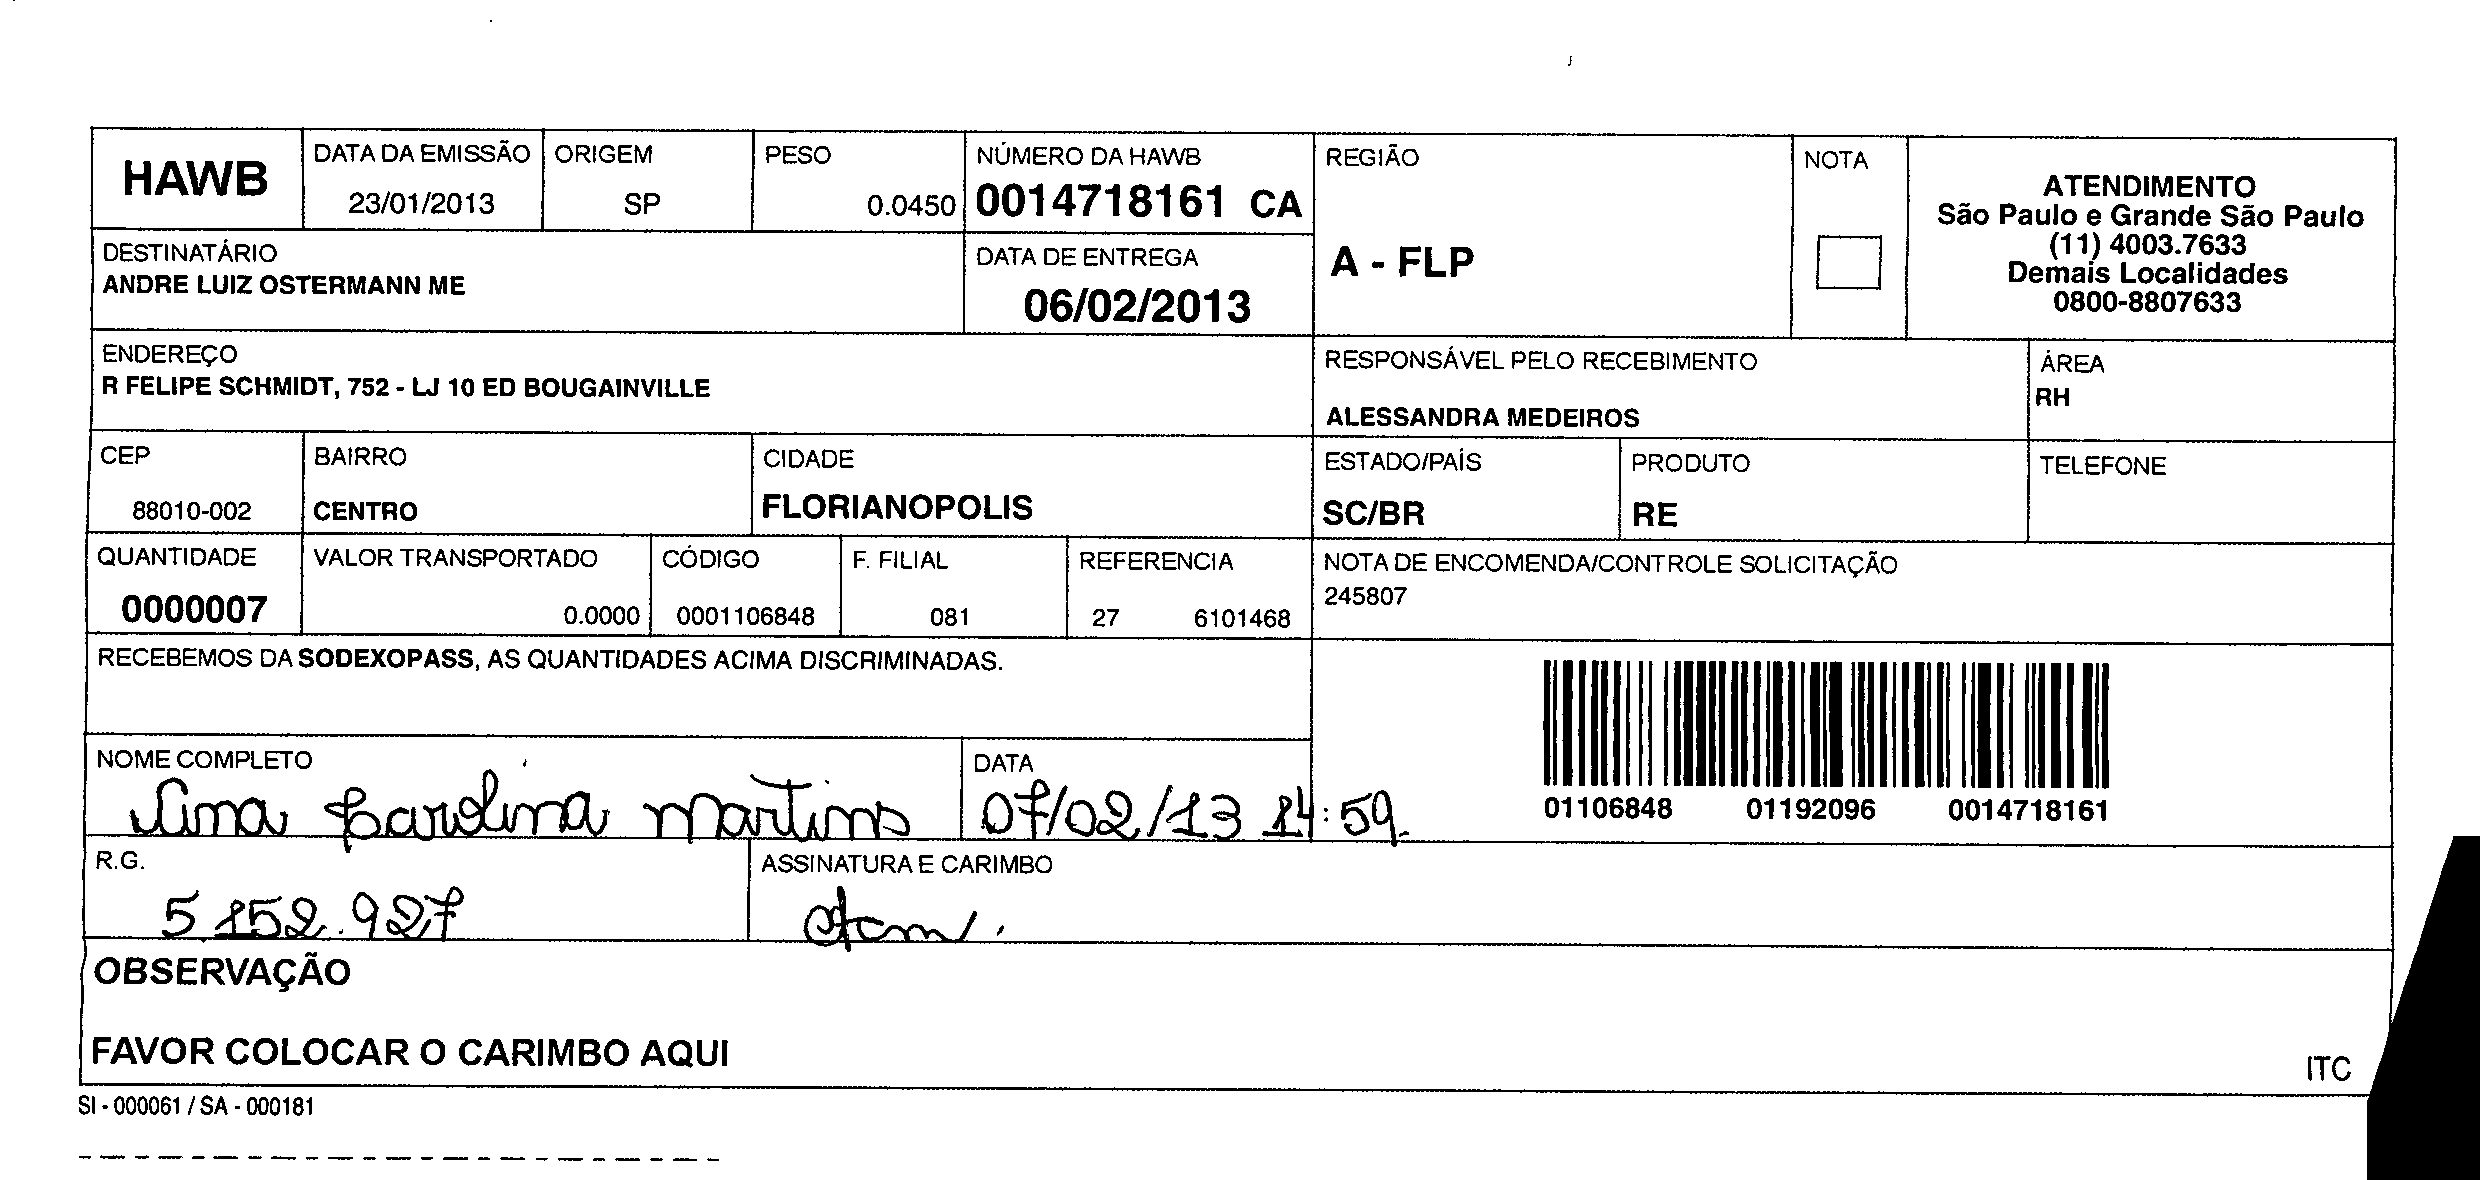 HAWB
DATA DA EMISSÃO
23/01/2013
ORIGEM
SP
PESO
0.0450
NÚMERO DA HAWB
0014718161 CA
REGIÃO
A - FLP
NOTA
ATENDIMENTO
São Paulo e Grande São Paulo
(11) 4003.7633
Demais Localidades
0800-8807633
DESTINATÁRIO
ANDRE LUIZ OSTERMANN ME
DATA DE ENTREGA
06/02/2013
ENDEREÇO
R FELIPE SCHMIDT, 752 - LJ 10 ED BOUGAINVILLE
RESPONSÁVEL PELO RECEBIMENTO
ALESSANDRA MEDEIROS
ÁREA
RH
CEP
88010-002
BAIRRO
CENTRO
CIDADE
FLORIANOPOLIS
ESTADO/PAÍS
SC/BR
PRODUTO
RE
TELEFONE
QUANTIDADE
0000007
VALOR TRANSPORTADO
0.0000
CÓDIGO
0001106848
F. FILIAL
081
REFERENCIA
27 6101468
NOTA DE ENCOMENDA/CONTROLE SOLICITAÇÃO
245807
RECEBEMOS DA SODEXOPASS, AS QUANTIDADES ACIMA DISCRIMINADAS.
01106848 01192096 0014718161
NOME COMPLETO
Carolina Martins
DATA
07/02/13 14:59
R.G.
5152.927
ASSINATURA E CARIMBO
OBSERVAÇÃO
FAVOR COLOCAR O CARIMBO AQUI
ITC
SI - 000061 / SA - 000181